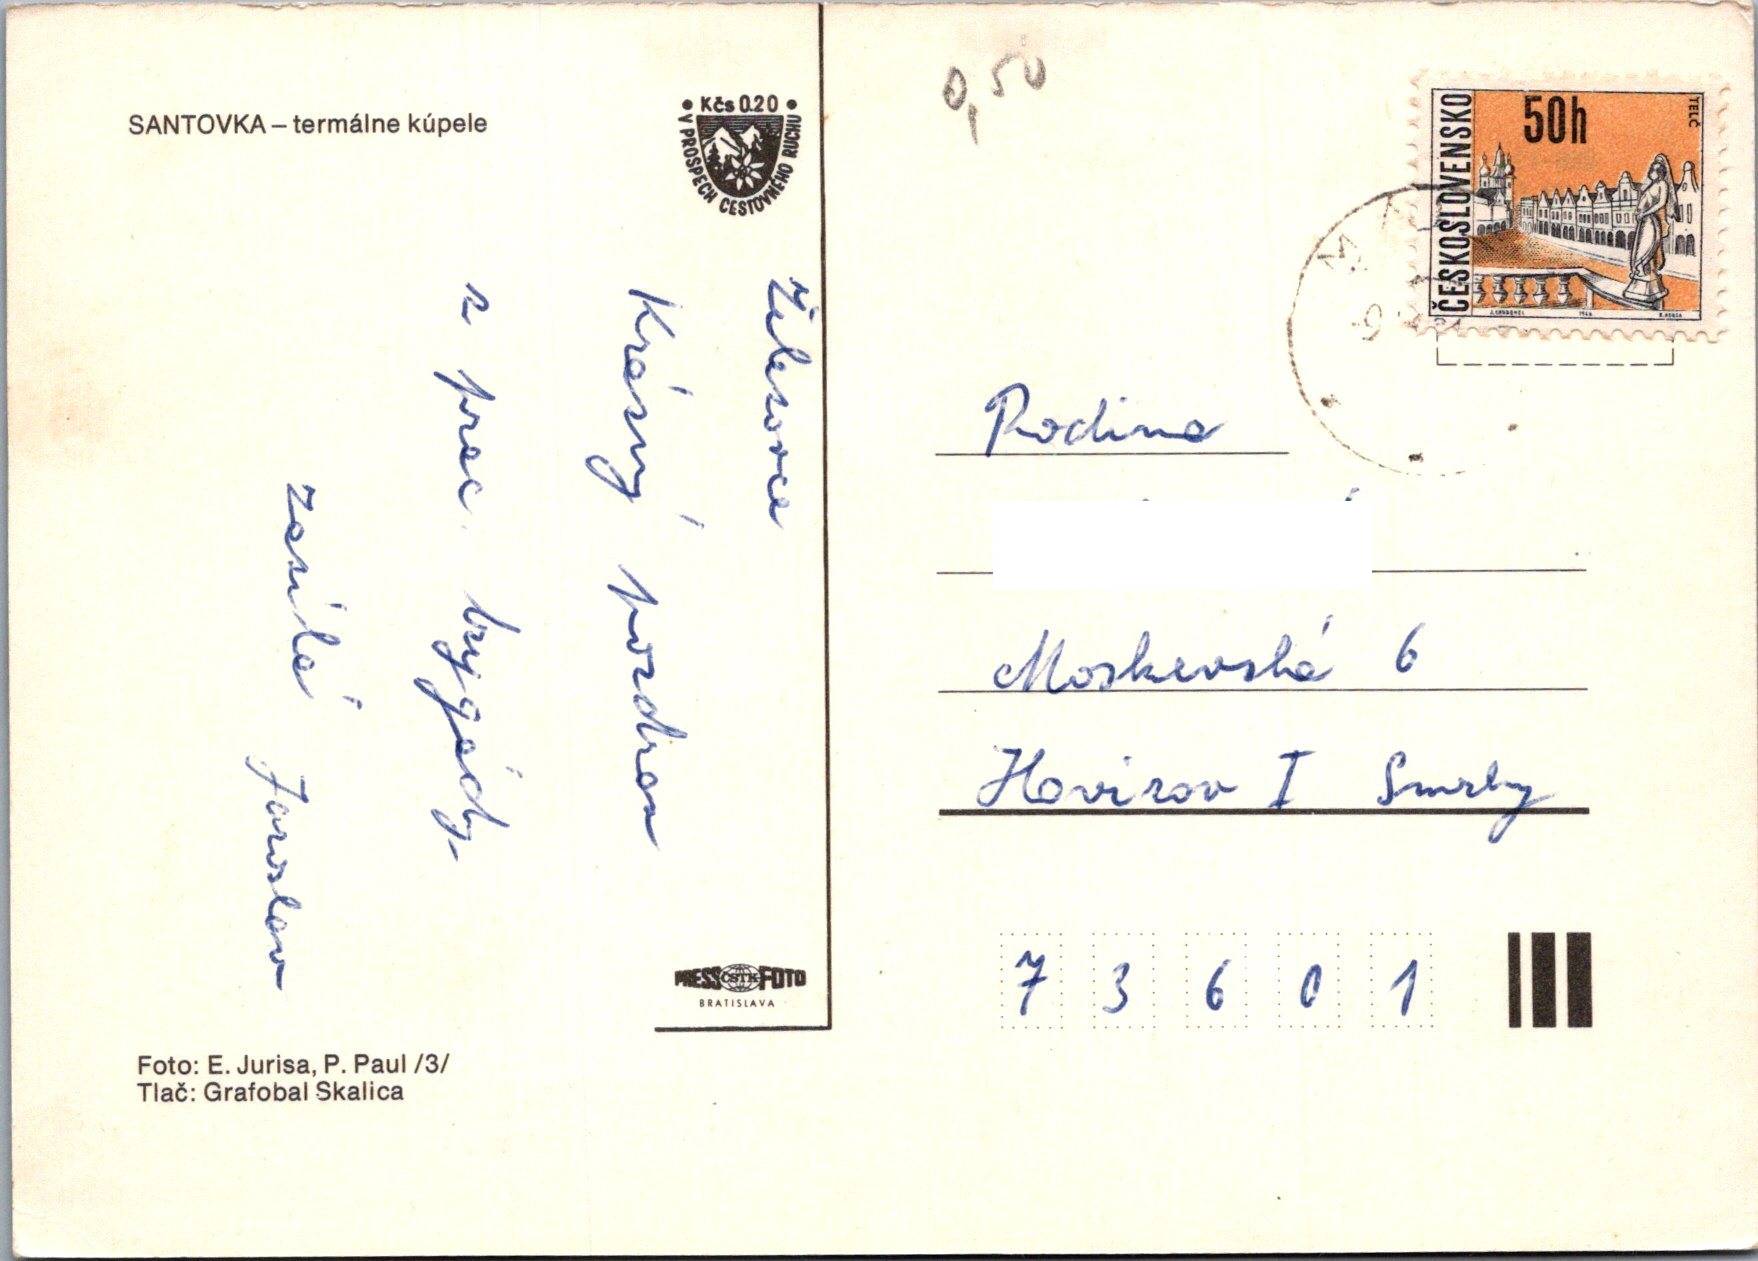 SANTOVKA – termálne kúpele
• Kčs 0.20 •
V PROSPECH CESTOVNÉHO RUCHU
Krásný pozdrav
z prac. brygády
zasílá Jaroslav
PRESS ČSTK FOTO
BRATISLAVA
Foto: E. Jurisa, P. Paul /3/
Tlač: Grafobal Skalica
0,50
ČESKOSLOVENSKO
50h
TELČ
Rodina
Moskevská 6
Havířov I
73601